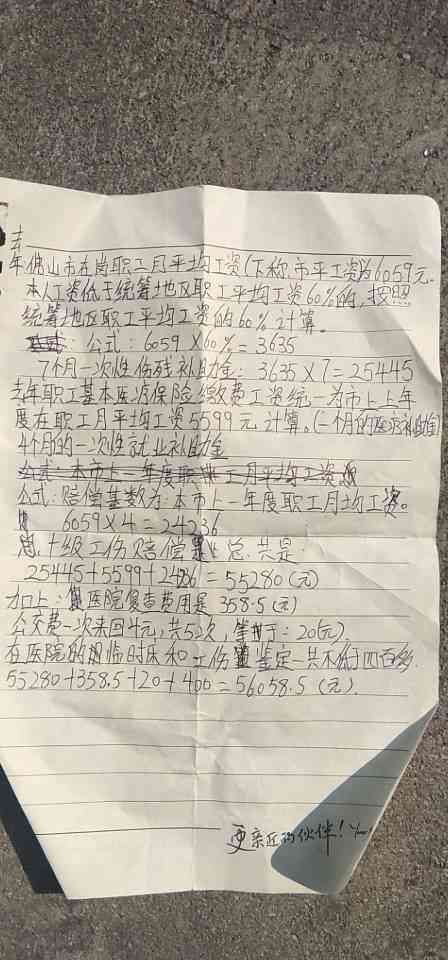 去
年佛山市在岗职工月平均工资(下称:市平工资)为6059元.
本人工资低于统筹地区职工平均工资60%的,按照
统筹地区职工平均工资的60%计算。
公式:6059×60%=3635
7个月一次性伤残补助金:3635×7=25445
去年职工基本医疗保险缴费工资统一为市上上年
度在职工月平均工资5599元计算。(一个月的医疗补助金)
4个月的一次性就业补助金
公式:本市上一年度职工月平均工资
公式:赔偿基数为:本市上一年度职工月均工资。
6059×4=24236
总:十级工伤赔偿总共是:
25445+5599+24236=55280(元)
加上:医院复查费用是358.5(元)
公交费一次来回4元,共5次,等于:20(元).
在医院的租临时床和工伤鉴定一共不低于四百多.
55280+358.5+20+400=56058.5(元).
更亲近的伙伴!